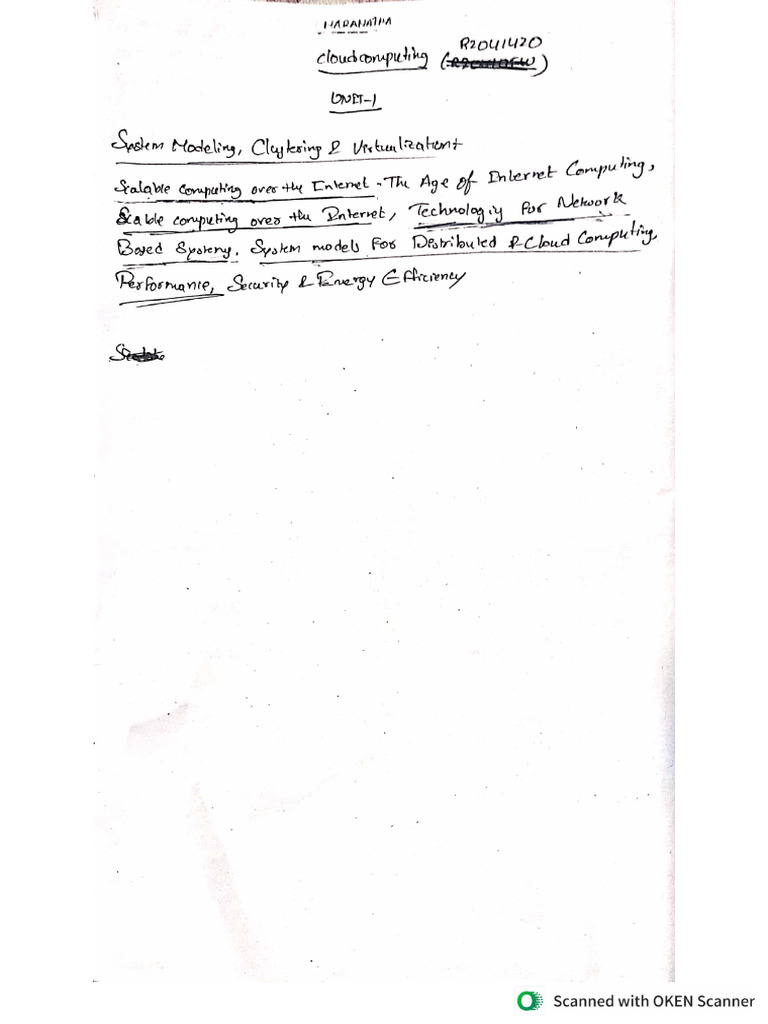 HARANATHA
R2041420
Cloud computing ( )
UNIT-1
System Modeling, Clustering & Virtualization
Scalable computing over the Internet - The Age of Internet Computing,
Scable computing over the Internet, Technologiy for Network
Based Systems, System models for Distributed & Cloud Computing,
Performance, Security & Energy Efficiency
Scanned with OKEN Scanner